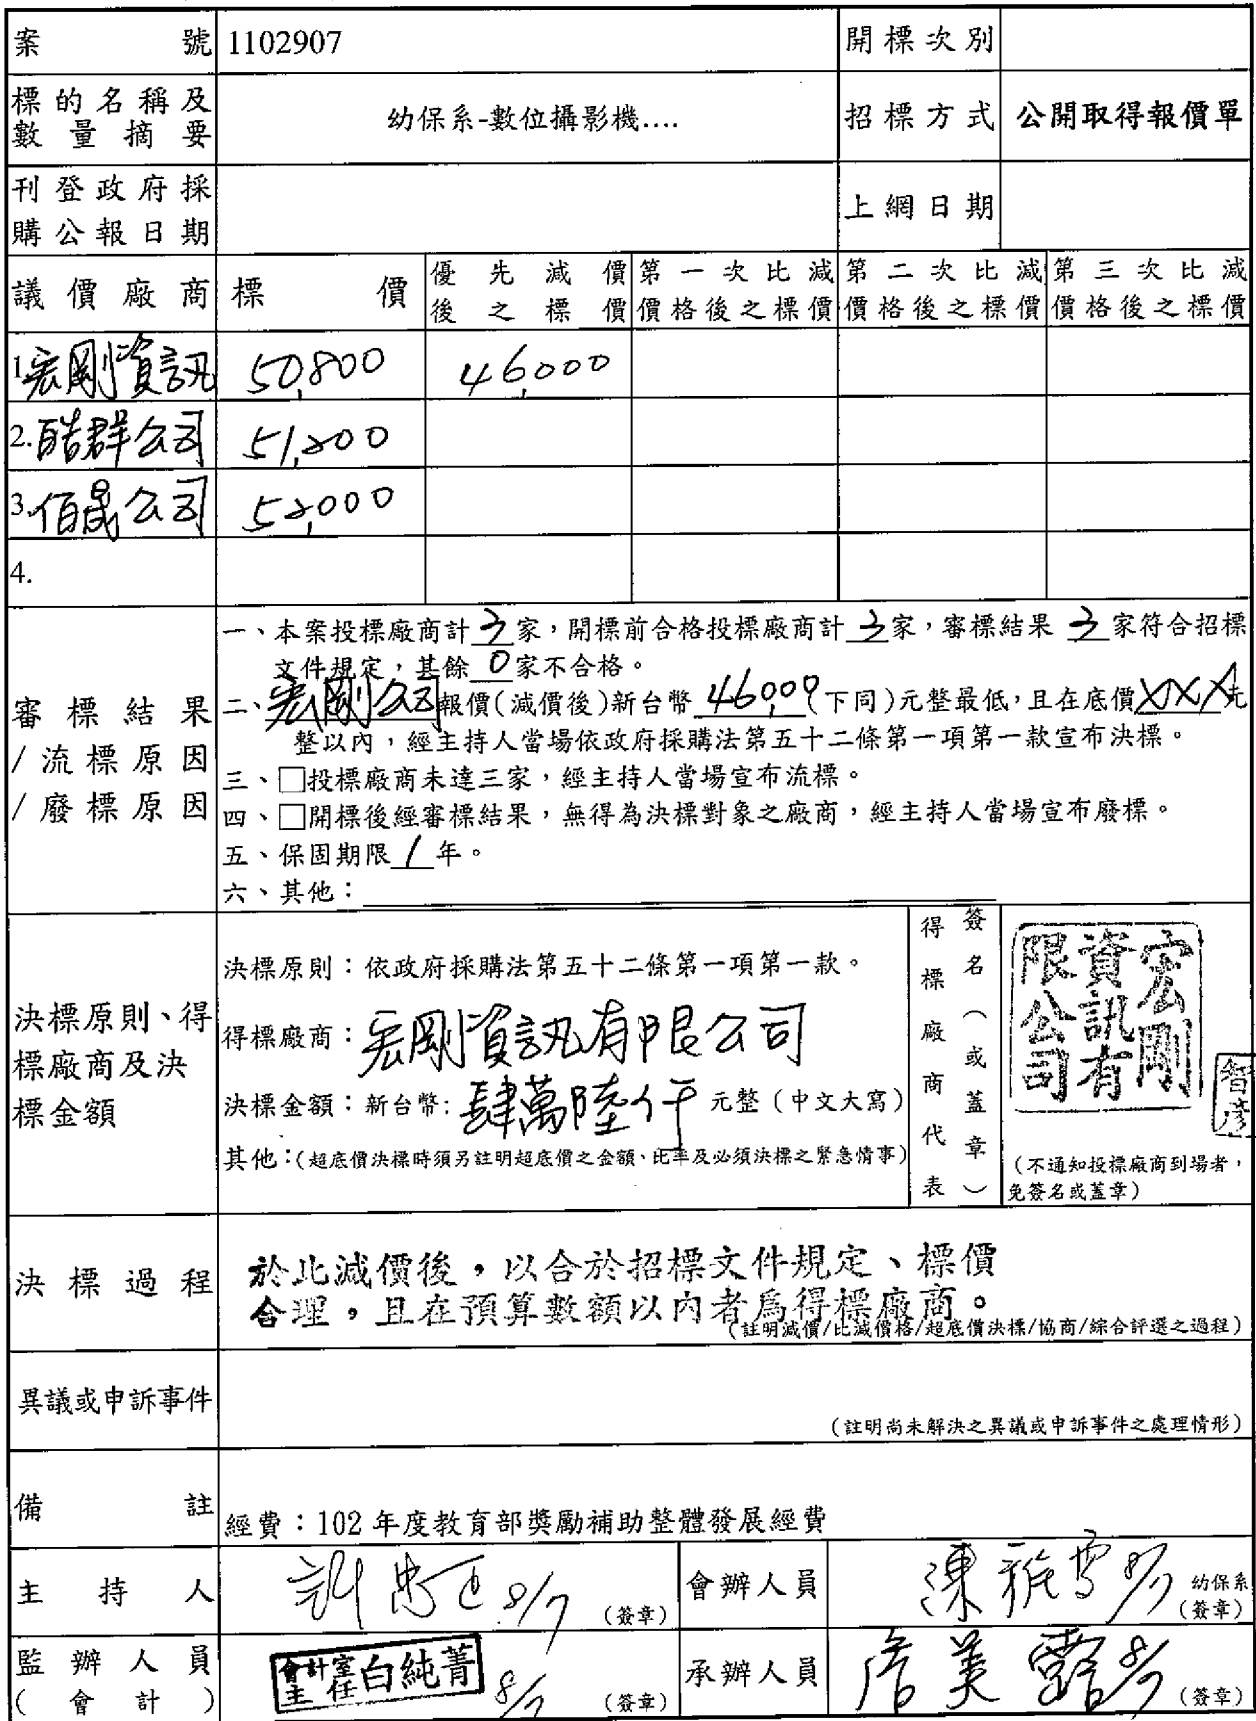 案號 1102907 開標次別
標的名稱及數量摘要 幼保系-數位攝影機.... 招標方式 公開取得報價單
刊登政府採購公報日期 上網日期
議價廠商 標價 優先減價後之標價 第一次比減價格後之標價 第二次比減價格後之標價 第三次比減價格後之標價
1.宏剛資訊 50,800 46,000
2.酷群公司 51,200
3.佰晟公司 52,000
4.
審標結果/流標原因/廢標原因
一、本案投標廠商計3家，開標前合格投標廠商計3家，審標結果3家符合招標
文件規定，其餘0家不合格。
二、宏剛公司報價(減價後)新台幣46,000(下同)元整最低，且在底價XXX元
整以內，經主持人當場依政府採購法第五十二條第一項第一款宣布決標。
三、□投標廠商未達三家，經主持人當場宣布流標。
四、□開標後經審標結果，無得為決標對象之廠商，經主持人當場宣布廢標。
五、保固期限1年。
六、其他：
決標原則、得標廠商及決標金額
決標原則：依政府採購法第五十二條第一項第一款。
得標廠商：宏剛資訊有限公司
決標金額：新台幣:肆萬陸仟 元整(中文大寫)
其他：(超底價決標時須另註明超底價之金額、比率及必須決標之緊急情事)
得標廠商代表簽名(或蓋章)
宏剛資訊有限公司
智彥
(不通知投標廠商到場者，
免簽名或蓋章)
決標過程
於比減價後，以合於招標文件規定、標價
合理，且在預算數額以內者為得標廠商。
(註明減價/比減價格/超底價決標/協商/綜合評選之過程)
異議或申訴事件
(註明尚未解決之異議或申訴事件之處理情形)
備註 經費：102 年度教育部獎勵補助整體發展經費
主持人 8/7 (簽章) 會辦人員 陳雅雪 8/7 幼保系(簽章)
監辦人員(會計) 會計室主任 白純菁 8/7 (簽章) 承辦人員 詹美露 8/7 (簽章)